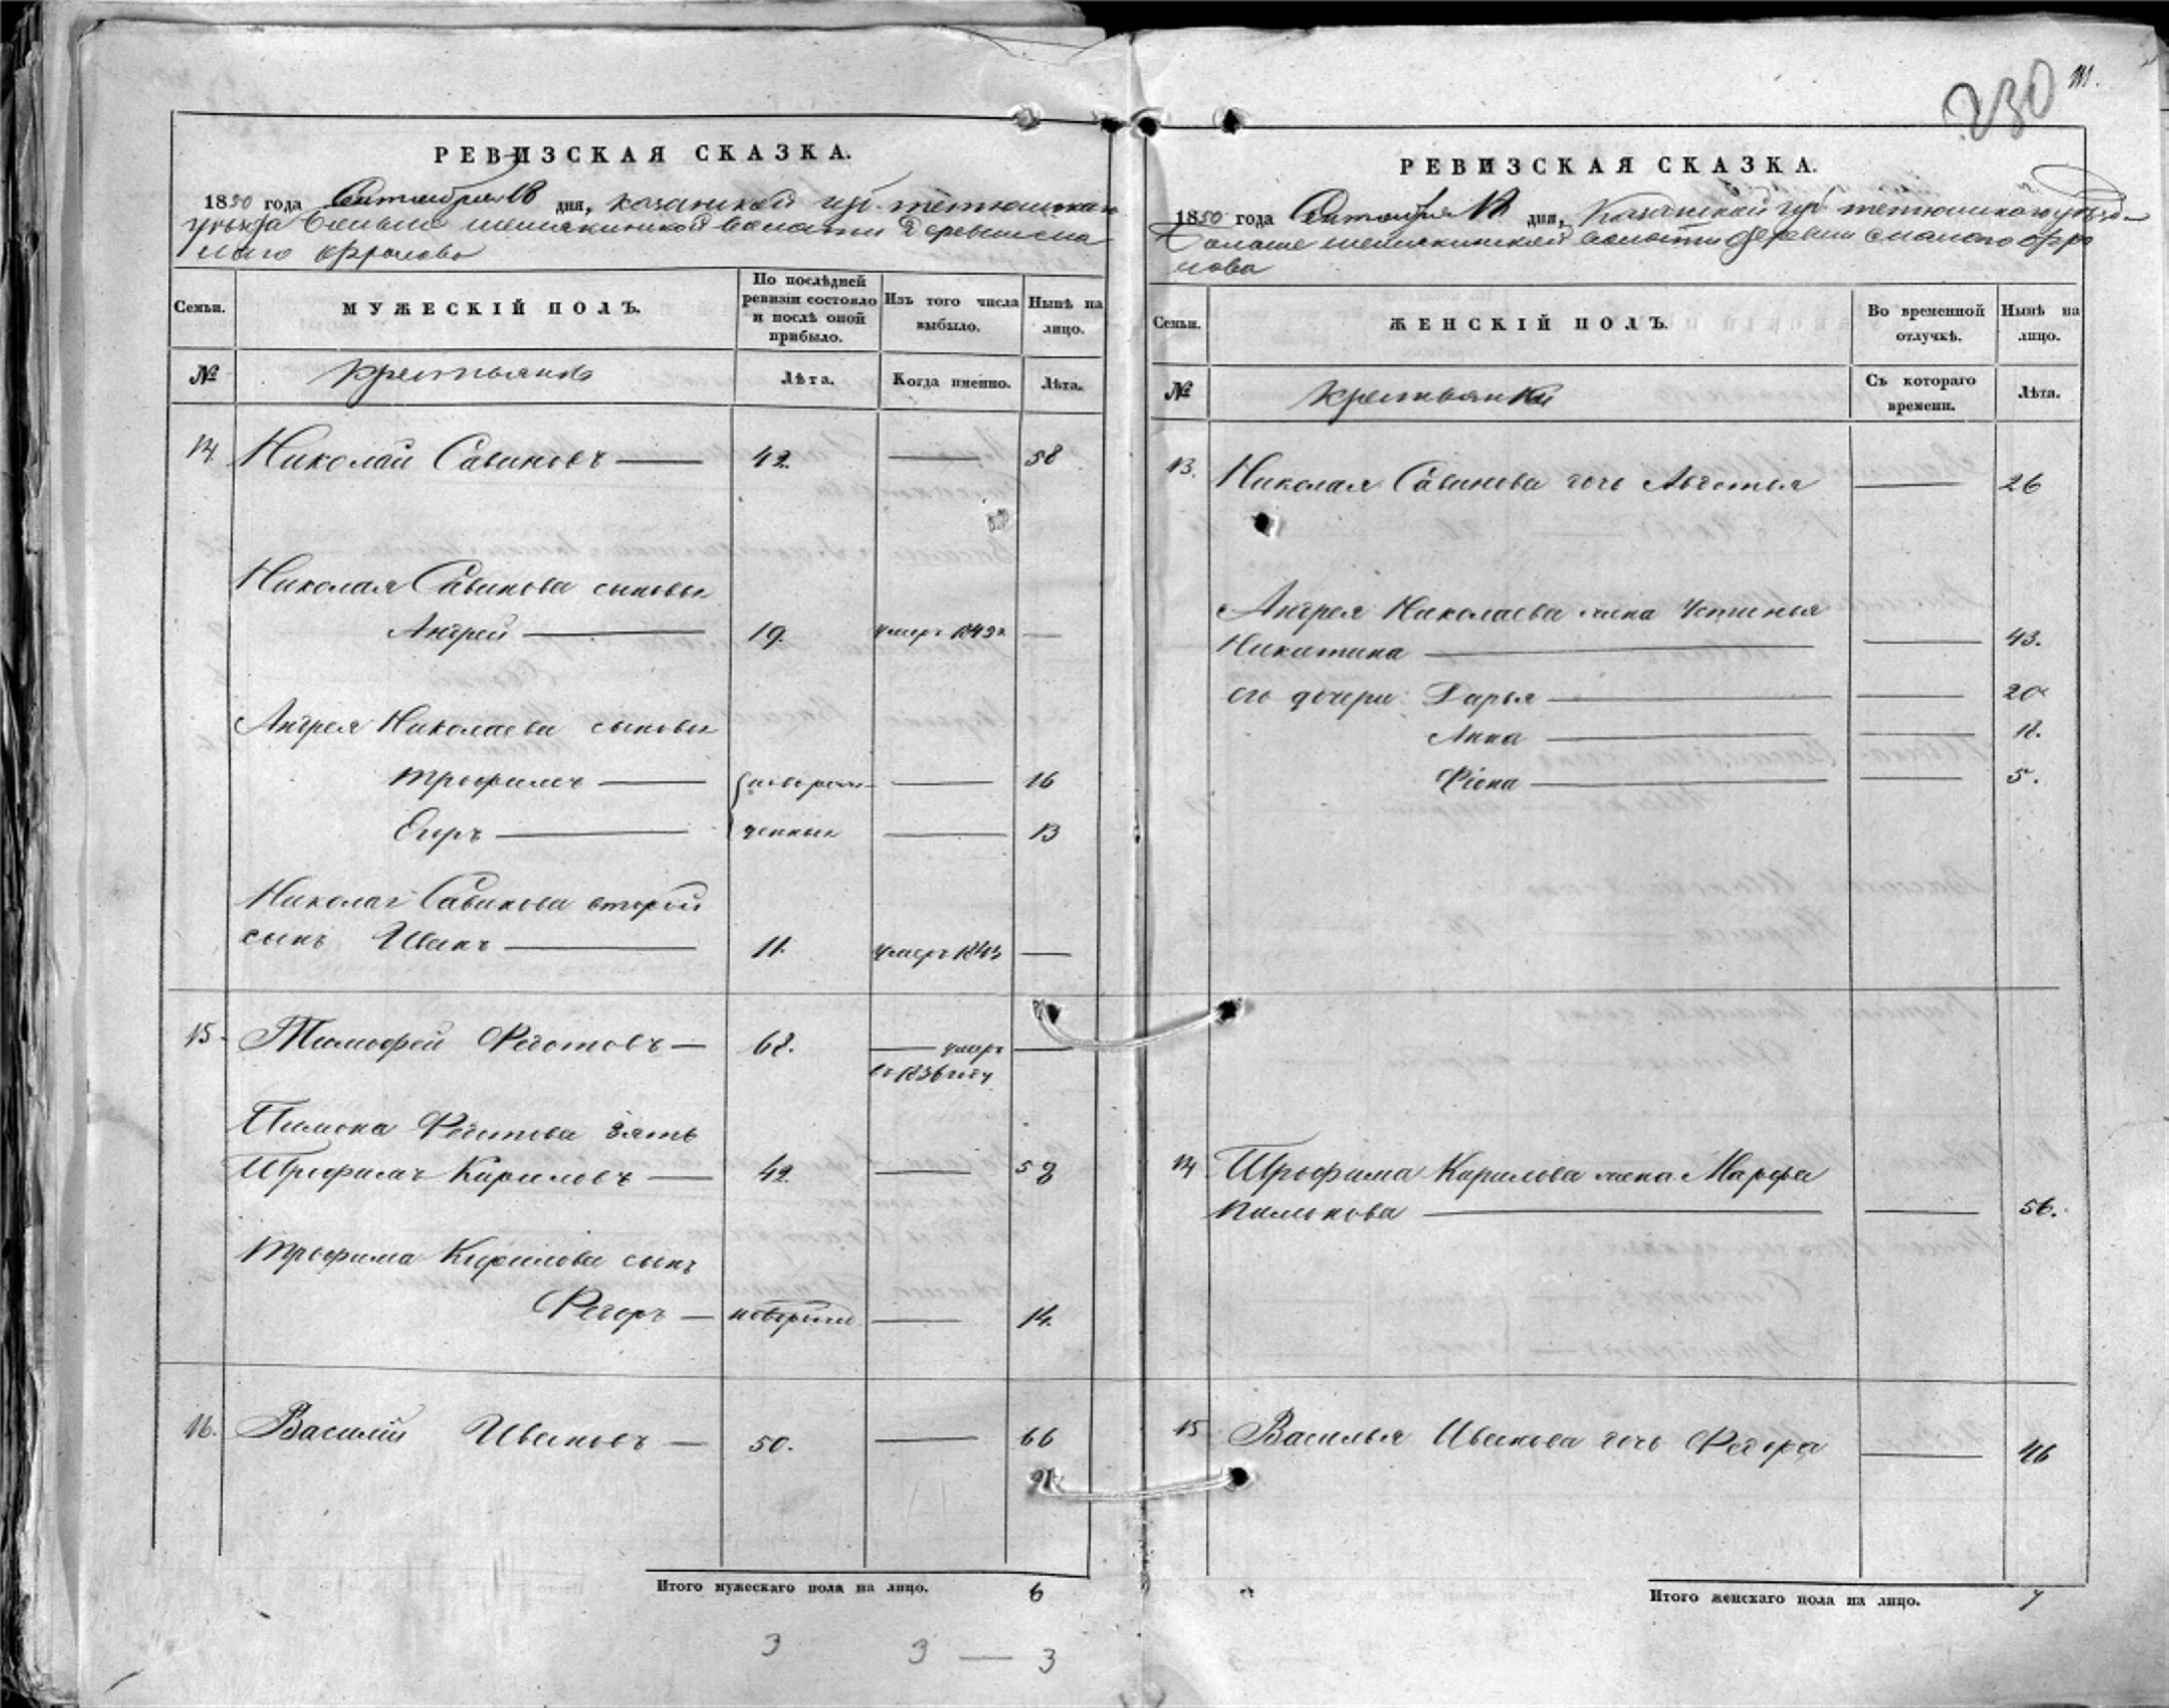 230
РЕВИЗСКАЯ СКАЗКА.
1850 года Октября 18 дня, казанской губ. тетюшскаго
уѣзда Больше шемякинской волости Деревни сма
лаго Фролово
Семьи.
МУЖЕСКІЙ ПОЛЪ.
По послѣдней ревизіи состояло и послѣ оной прибыло.
Изъ того числа выбыло.
Нынѣ на лицо.
№
крестьянъ
Лѣта.
Когда именно.
Лѣта.
14 Николай Савиновъ — 42. — 58
Николая Савинова сыновья
Андрей — 19. умеръ —
Андрея Николаева сыновья
Трофимъ — новорож — 16
Егоръ — денныя — 13
Николая Савинова второй
сынъ Иванъ — 11. умеръ 1843 —
15 Тимофей Федотовъ — 68. — умеръ —
въ 1836 году
Пимона Федотова зять
Трофимъ Кириловъ — 42. — 58
Трофима Кирилова сынъ
Федоръ — новорожд — 14.
16. Василій Ивановъ — 50. — 66
Итого мужескаго пола на лицо. 6
3 3 — 3
РЕВИЗСКАЯ СКАЗКА.
1850 года Октября 18 дня, Казанской губ тетюшскаго уѣзда
Больше шемякинской волости деревни смалаго Фро
лова
Семьи.
ЖЕНСКІЙ ПОЛЪ.
Во временной отлучкѣ.
Нынѣ на лицо.
№
крестьянки
Съ котораго времени.
Лѣта.
13. Николая Савинова дочь Авдотья — 26
Андрея Николаева жена Устинья
Никитина — — 43.
его дочери Дарья — — 20
Анна — — 18.
Фіона — — 5.
14 Трофима Кирилова жена Марфа
Пимонова — — 56.
15 Василья Иванова дочь Федора — 46
Итого женскаго пола на лицо. 7